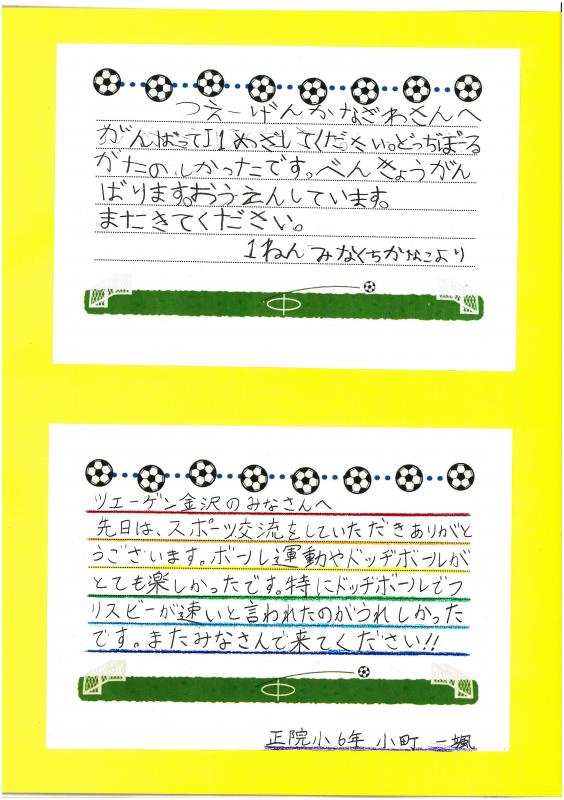 つえーげんかなざわさんへ
がんばってJ1めざしてください。どっぢぼーる
がたのしかったです。べんきょうがん
ばります。おうえんしています。
またきてください。
1ねん みなくちかなこより
ツエーゲン金沢のみなさんへ
先日は、スポーツ交流をしていただきありがと
うございます。ボール運動やドッヂボールが
とても楽しかったです。特にドッヂボールでフ
リスビーが速いと言われたのがうれしかった
です。またみなさんで来てください!!
正院小6年 小町 一颯